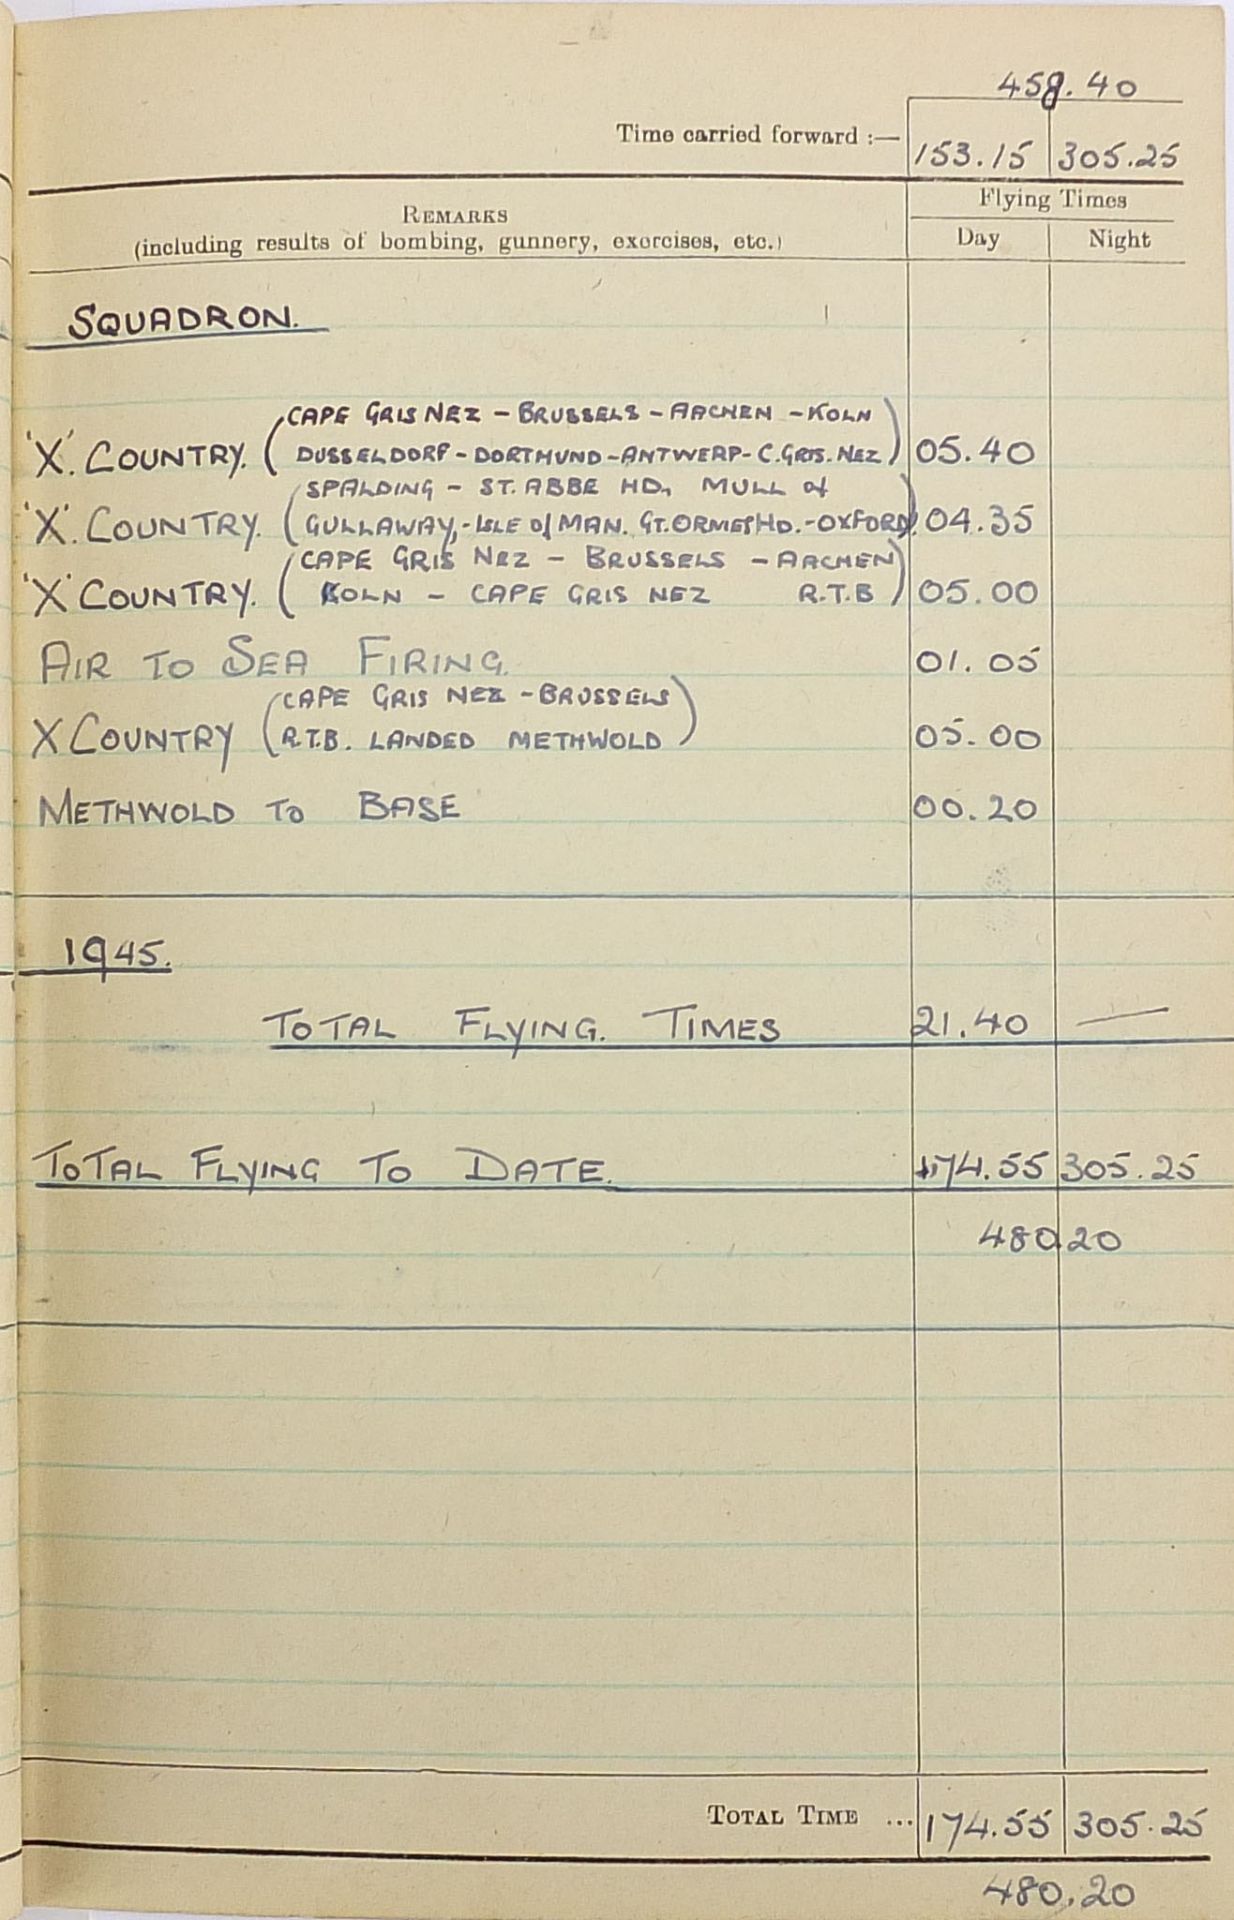 458.40
Time carried forward :— 153.15 305.25
REMARKS
(including results of bombing, gunnery, exercises, etc.)
Flying Times
Day Night
SQUADRON.
'X'. COUNTRY. (CAPE GRIS NEZ - BRUSSELS - AACHEN - KOLN
DUSSELDORF - DORTMUND - ANTWERP - C. GRIS. NEZ) 05.40
'X'. COUNTRY. (SPALDING - ST. ABBE HD, MULL of
GULLAWAY, - ISLE of MAN. GT. ORMES HD. - OXFORD). 04.35
'X' COUNTRY. (CAPE GRIS NEZ - BRUSSELS - AACHEN
KOLN - CAPE GRIS NEZ R.T.B) 05.00
AIR TO SEA FIRING. 01.05
X COUNTRY (CAPE GRIS NEZ - BRUSSELS
R.T.B. LANDED METHWOLD) 05.00
METHWOLD TO BASE 00.20
1945.
TOTAL FLYING. TIMES 21.40 —
TOTAL FLYING TO DATE. 174.55 305.25
480.20
TOTAL TIME ... 174.55 305.25
480.20